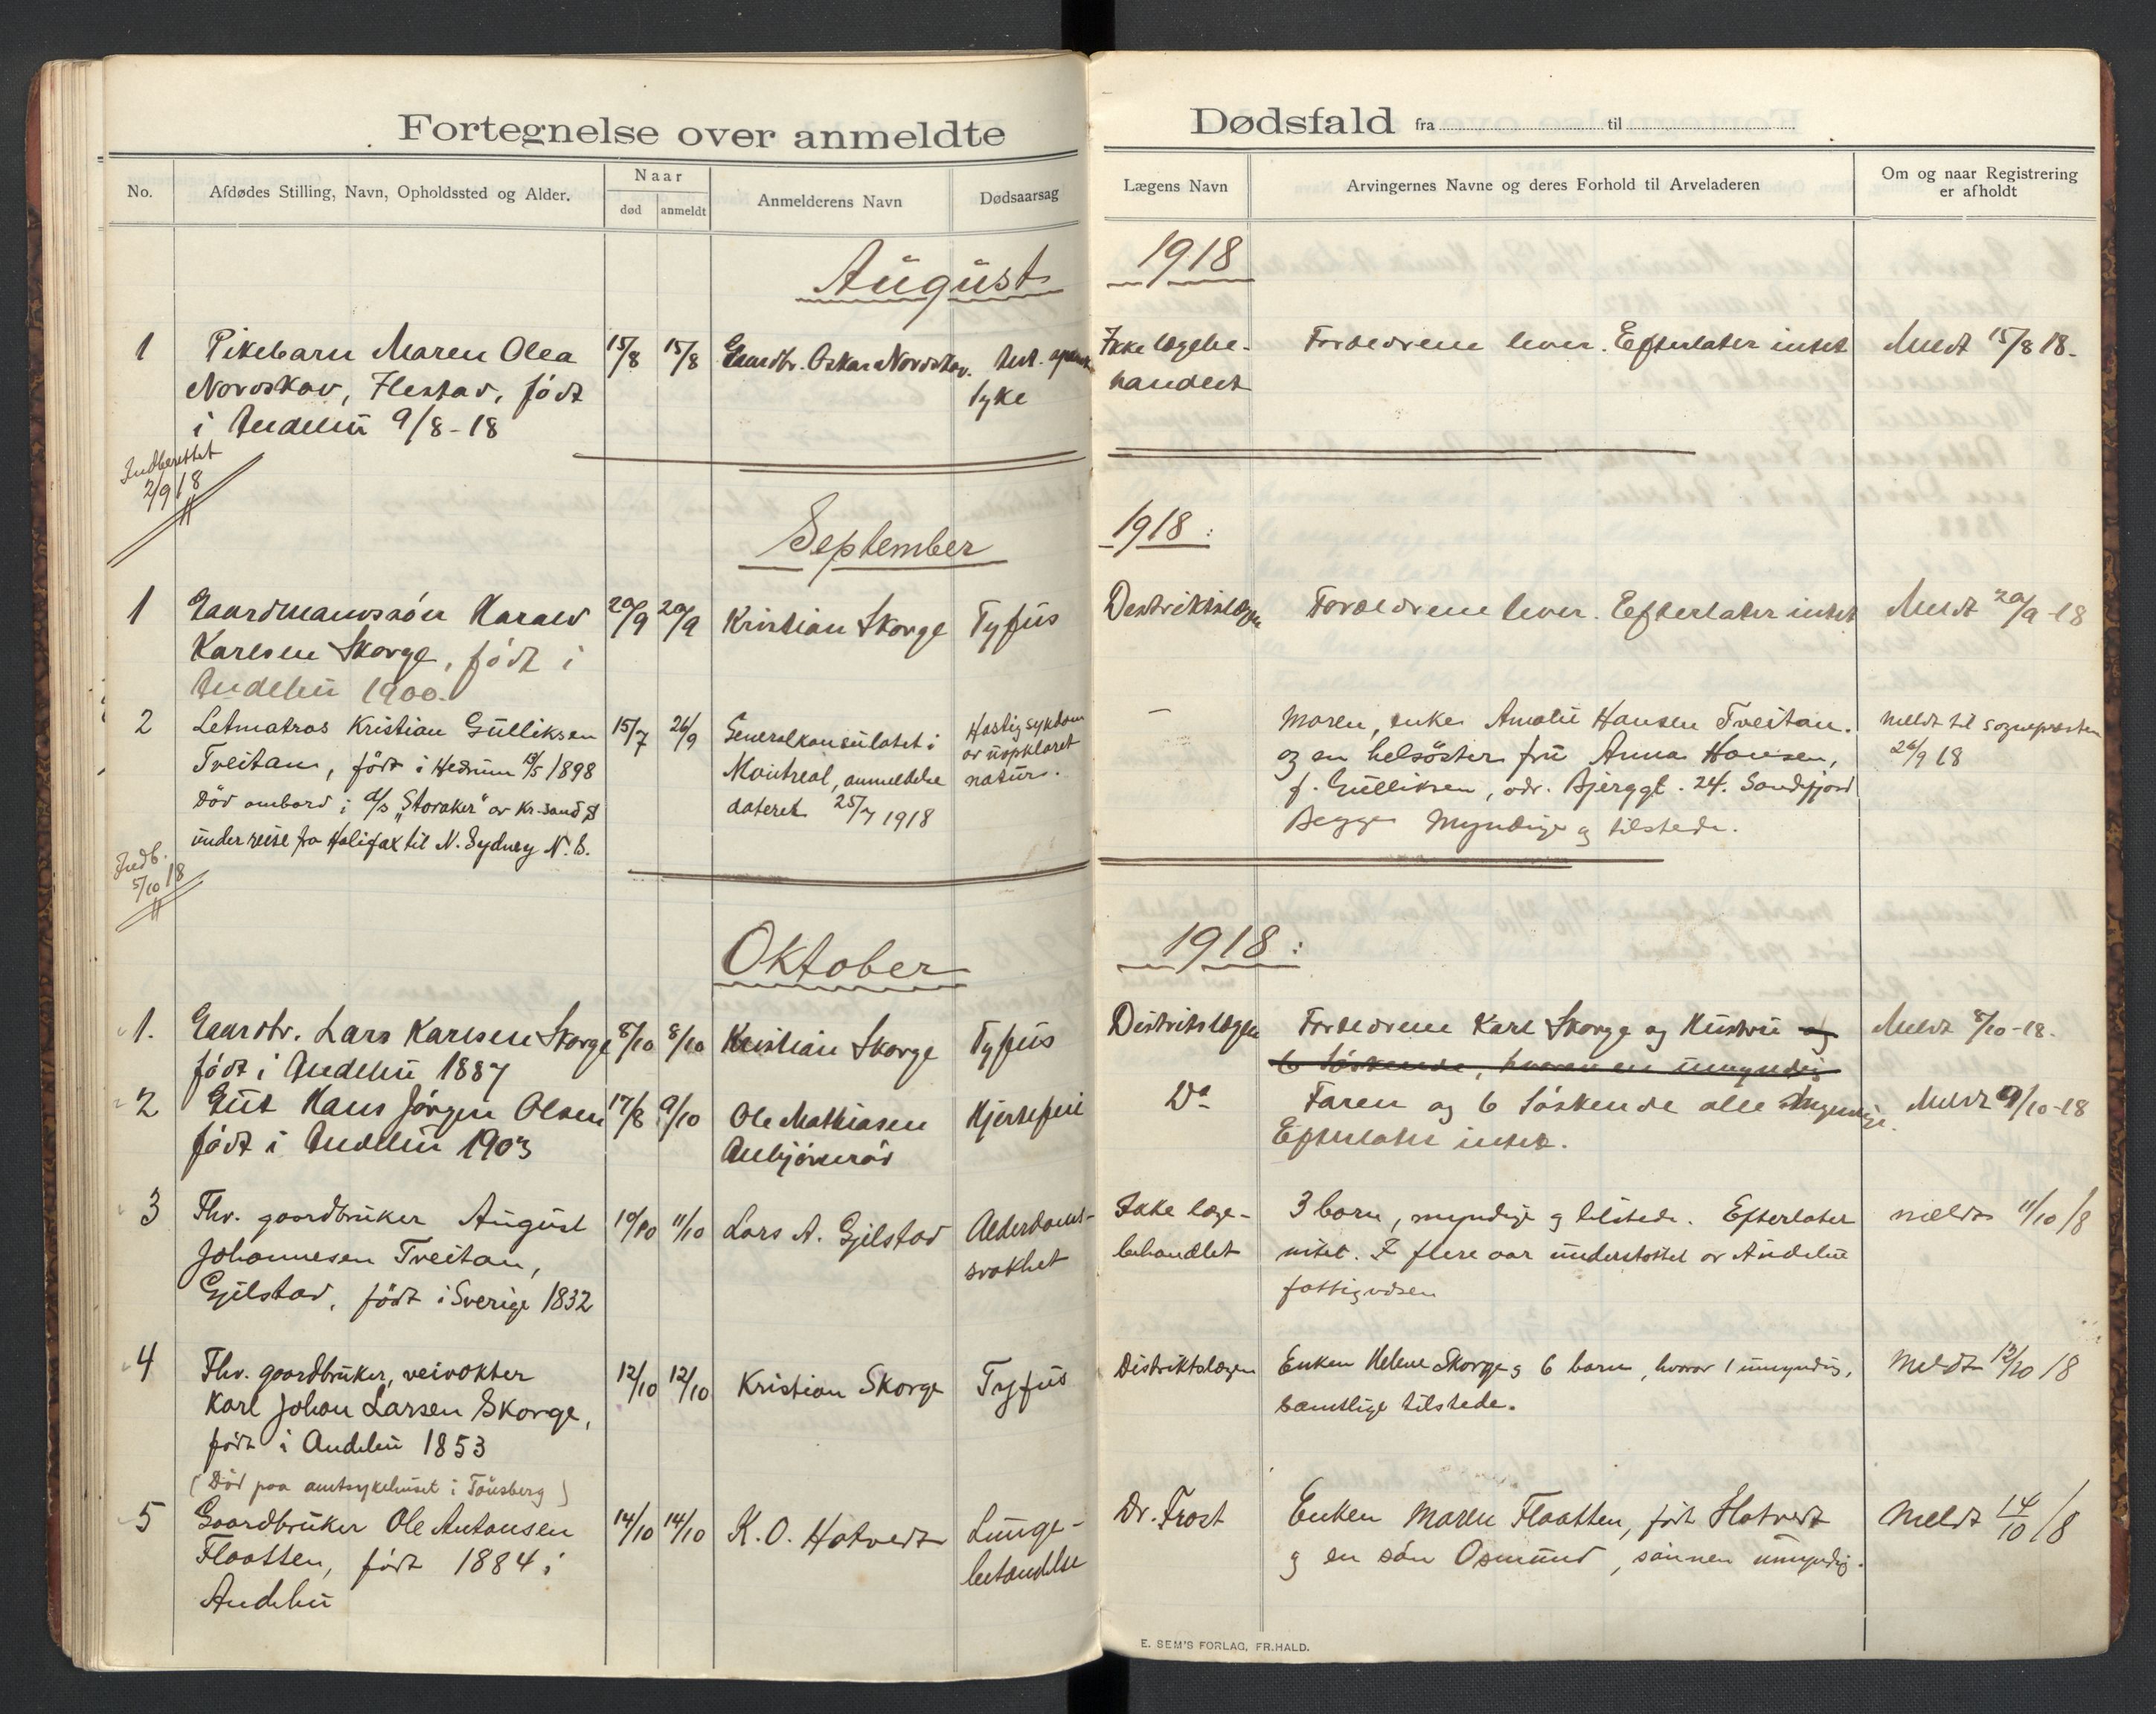 Fortegnelse over anmeldte
No.
Afdødes Stilling, Navn, Opholdssted og Alder.
Naar
død
anmeldt
Anmelderens Navn
Dødsaarsag
August
1
Pikebarn Maren Olea
Nordskav, Ilestad, födt
i Andebu 9/8-18
15/8
15/8
Gaardbr. Oskar Nordskav.
syke
Indberettet
2/9 18
September
1
Gaardmandssön Harald
Karlsen Skorge, födt i
Andebu 1900.
20/9
20/9
Kristian Skorge
Tyfus
2
Letmatros Kristian Gulliksen
Tveitan, födt i Hedrum 13/5 1898
Död ombord i d/s "Storaker" av Kr.sand S
under reise fra Halifax til N. Sydney N. S.
15/7
26/9
Generalkonsulatet i
Montreal, anmeldelse
dateret 25/7 1918
Hastig sykdom
av uopklaret
natur.
Indb.
5/10 18
Oktober
1.
Gaardbr. Lars Karlsen Skorge
födt i Andebu 1887
8/10
8/10
Kristian Skorge
Tyfus
2
Gut Hans Jörgen Olsen
födt i Andebu 1903
17/8
9/10
Ole Mathiasen
Anbjörnröd
Hjertefeil
3
Fhv. gaardbruker August
Johannesen Tveitan,
Gjelstad, födt i Sverige 1832
10/10
11/10
Lars A. Gjelstad
Alderdoms-
svakhet
4
Fhv. gaardbruker, veivokter
Karl Johan Larsen Skorge,
födt i Andebu 1853
(Död paa amtsykehuset i Tönsberg)
12/10
12/10
Kristian Skorge
Tyfus
5
Gaardbruker Ole Antonsen
Flaatten, födt 1884 i
Andebu
14/10
14/10
K. O. Hotvedt
Lunge-
betændelse
Dødsfald fra til
Lægens Navn
Arvingernes Navne og deres Forhold til Arveladeren
Om og naar Registrering
er afholdt
1918
Ikke lægebe-
handlet
Forældrene lever. Efterlater intet
Meldt 15/8 18.
1918:
Destriktslægen
Forældrene lever. Efterlater intet
Meldt 20/9-18
—
Moren, enke Amalie Hansen Tveitan.
og en helsöster fru Anna Hansen,
f. Gulliksen, adr. Bjerggt. 24. Sandefjord
Begge myndige og tilstede.
meldt til sognepresten
26/9 18
1918:
Distritslægen
Forældrene Karl Skorge og Hustru og
6 Söskende, hvorav en umyndig
Meldt 8/10-18.
Do
Faren og 6 söskende alle myndige.
Efterlater intet.
Meldt 9/10-18
Ikke læge-
behandlet
3 barn, myndige og tilstede. Efterlater
intet. I flere aar understöttet av Andebu
fattigvæsen
meldt 11/10 18
Distriktslægen
Enken Helene Skorge og 6 barn, hvorav 1 umyndig,
samtlige tilstede.
Meldt 12/10 18
Dr. Frost
Enken Maren Flaatten, född Hotvedt
og en sön Osmund, sönnen umyndig.
Meldt 14/10 18
E. SEM'S FORLAG, FR.HALD.